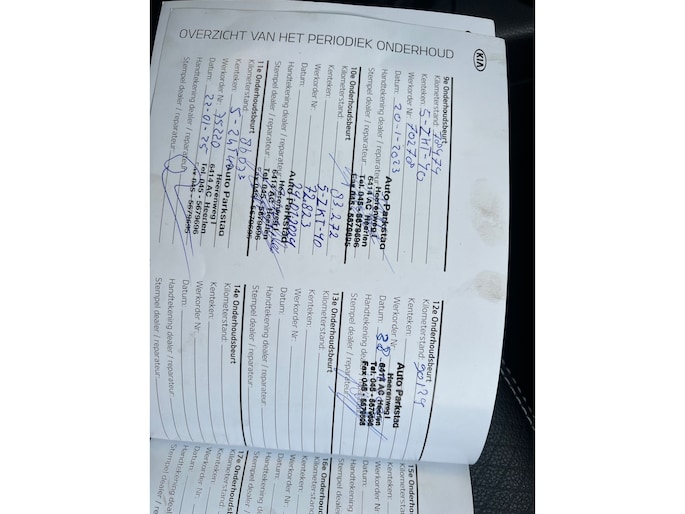 OVERZICHT VAN HET PERIODIEK ONDERHOUD
KIA
9e Onderhoudsbeurt
Kilometerstand:
Kenteken: 5-ZKT-40
Werkorder Nr: 70278
Datum: 20-1-2023
Handtekening dealer / reparateur:
Stempel dealer / reparateur:
Auto Parkstad
Heerenweg 1
6414 AC Heerlen
Tel. 045 - 5679696
10e Onderhoudsbeurt
Kilometerstand: 83272
Kenteken: 5-ZKT-40
Werkorder Nr: 72823
Datum:
Handtekening dealer / reparateur:
Stempel dealer / reparateur:
Auto Parkstad
Heerenweg 1
6414 AC Heerlen
Tel. 045 - 5679696
11e Onderhoudsbeurt
Kilometerstand:
Kenteken:
Werkorder Nr: 75220
Datum: 22-01-25
Handtekening dealer / reparateur:
Stempel dealer / reparateur:
Auto Parkstad
Heerenweg 1
6414 AC Heerlen
Tel. 045 - 5679696
12e Onderhoudsbeurt
Kilometerstand: 90129
Kenteken:
Werkorder Nr:
Datum:
Handtekening dealer / reparateur:
Stempel dealer / reparateur:
Auto Parkstad
Heerenweg 1
6414 AC Heerlen
Tel. 045 - 5679696
13e Onderhoudsbeurt
Kilometerstand:
Kenteken:
Werkorder Nr:
Datum:
Handtekening dealer / reparateur:
Stempel dealer / reparateur:
14e Onderhoudsbeurt
Kilometerstand:
Kenteken:
Werkorder Nr:
Datum:
Handtekening dealer / reparateur:
Stempel dealer / reparateur:
15e Onderhoudsb
Kilometerstand
Kenteken:
Werkorder
Datum:
Handteken
Stempel deale
16e Onderh
Kilometerstand
Kenteken:
Werkorder
Datum:
Handteken
Stempel
17e Onderhouds
Kilometers
Kenteken
Werkor
Datum:
Handteken
Stempel